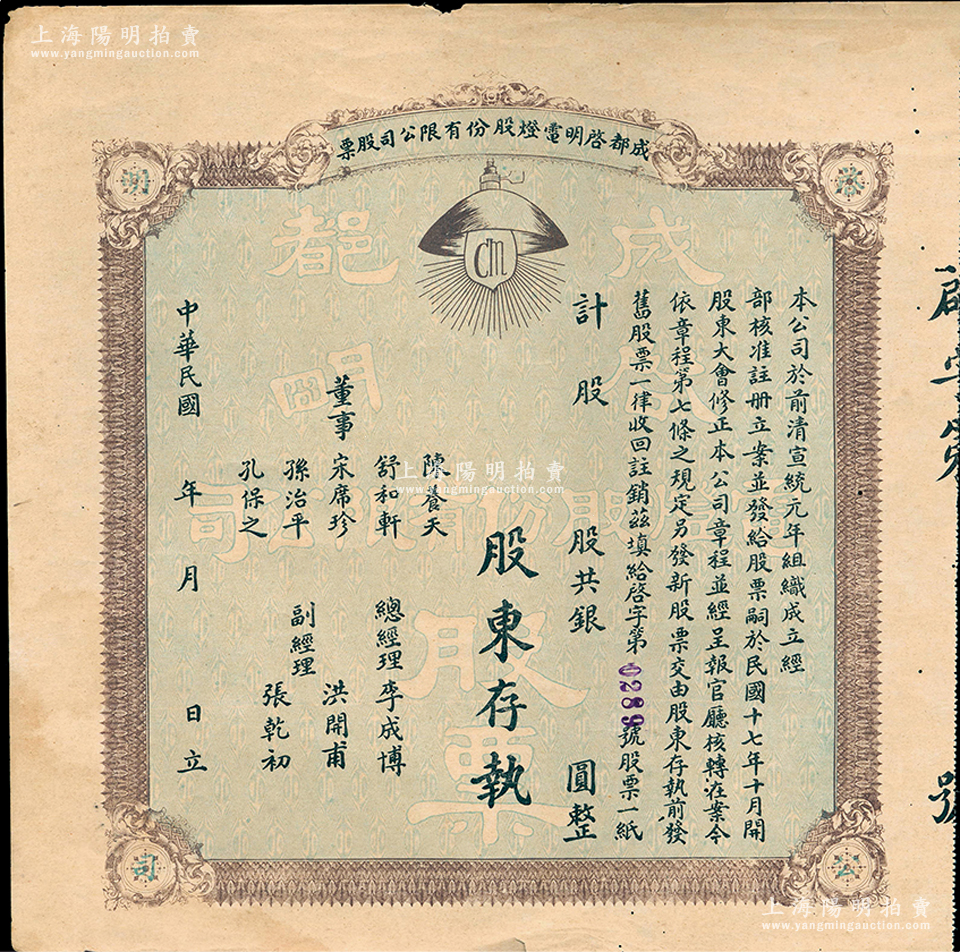 上海陽明拍賣
www.yangmingauction.com
成都啓明電燈股份有限公司股票
CM
成都
啟明
電燈股份有限公司
股票
本公司於前清宣統元年組織成立經
部核准註册立案並發給股票嗣於民國十七年十月開
股東大會修正本公司章程並經呈報官廳核轉在案今
依章程第七條之規定另發新股票交由股東存執前發
舊股票一律收回註銷茲填給啓字第0289號股票一紙
計 股 股共銀 圓整
股東存執
董事
陳養天
舒和軒
宋席珍
孫治平
孔保之
總經理 李成博
副經理
洪開甫
張乾初
中華民國 年 月 日立
公
司
號
上海陽明拍賣
www.yangmingauction.com
上海陽明拍賣
www.yangmingauction.com